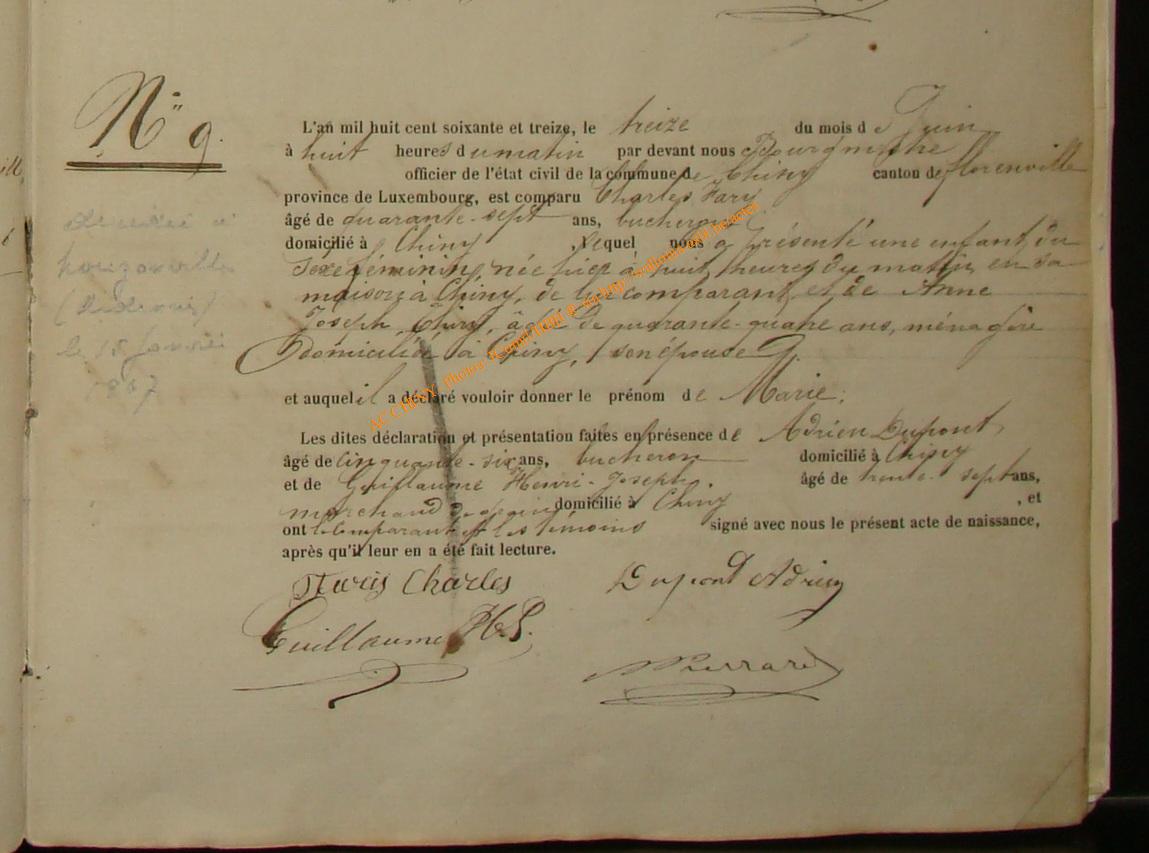 N° 9.
L'an mil huit cent soixante et treize, le treize du mois de Juin
à huit heures du matin par devant nous Bourgmestre
officier de l'état civil de la commune de Chiny canton de florenville
province de Luxembourg, est comparu Charles
âgé de quarante-sept ans, bucheron
domicilié à Chiny, lequel nous a présenté une enfant du
sexe féminin, née hier à huit heures du matin en sa
maison à Chiny, de lui comparant et de Anne
Joseph Thiry, âgée de quarante-quatre ans, ménagère
domiciliée à Chiny, son épouse
et auquel il a déclaré vouloir donner le prénom de Marie;
Les dites déclaration et présentation faites en présence de Adrien Dupont,
âgé de cinquante-six ans, bucheron domicilié à Chiny
et de Guillaume Henri-Joseph, âgé de trente-sept ans,
marchand domicilié à Chiny, et
ont le comparant et les témoins signé avec nous le présent acte de naissance,
après qu'il leur en a été fait lecture.
Charles Dupont Adrien
Guillaume H. J.
décédée à
le 15 Janvier
AC CHINY. Photos